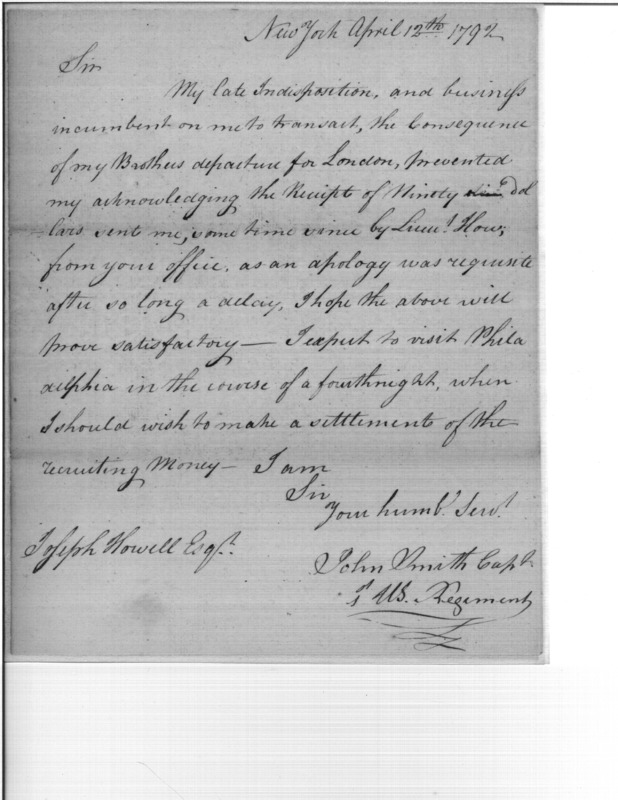 New York April 12th. 1792
Sir
My late Indisposition, and business
incumbent on me to transact, the Consequence
of my Brothers departure for London, prevented
my acknowledging the Receipt of Ninety Dol
lars sent me, some time since by Lieut. How,
from your office, as an apology was requisite
after so long a delay, I hope the above will
prove satisfactory — I expect to visit Phila
delphia in the course of a fourthnight, when
I should wish to make a settlement of the
recruiting Money — I am
Sir
Your humbl. Servt.
Joseph Howell Esqr.
John Smith Capt
1st US. Regiment